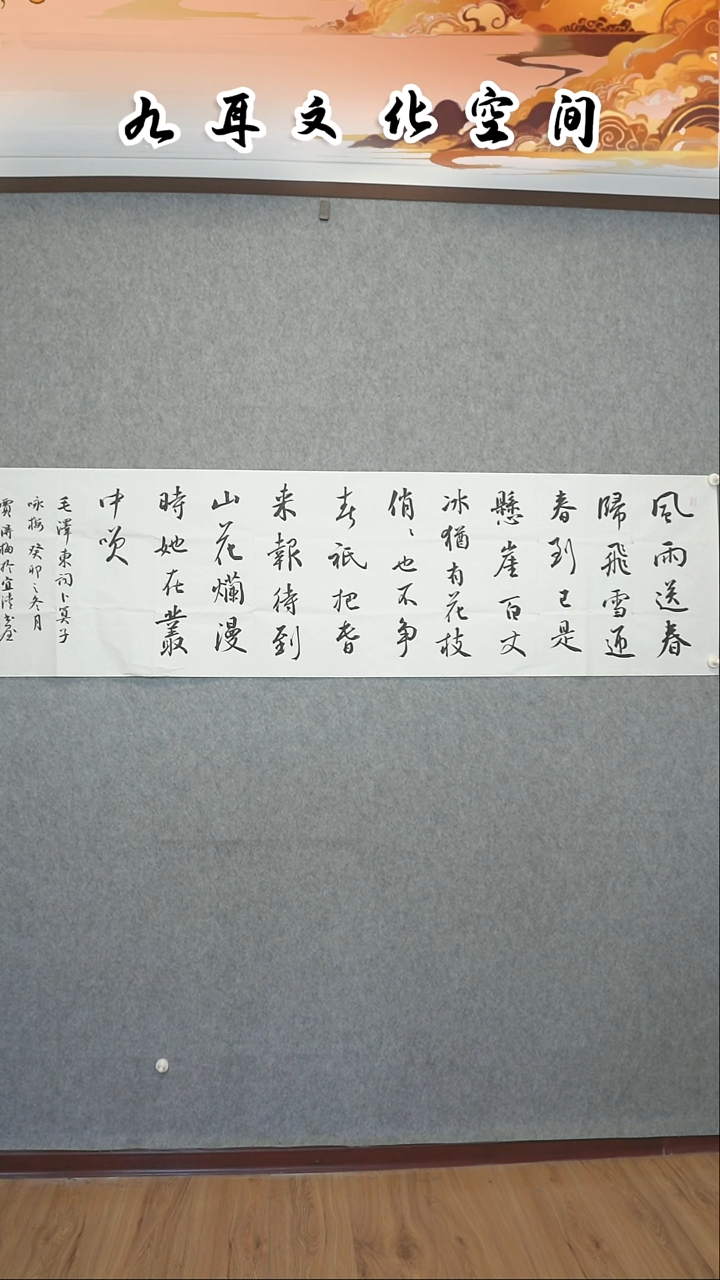 九耳文化空间
風雨送春
歸飛雪迎
春到已是
懸崖百丈
冰猶有花枝
俏〻也不争
春祇把春
来報待到
山花爛漫
時她在叢
中咲
毛澤東詞卜算子
咏梅 癸卯之冬月